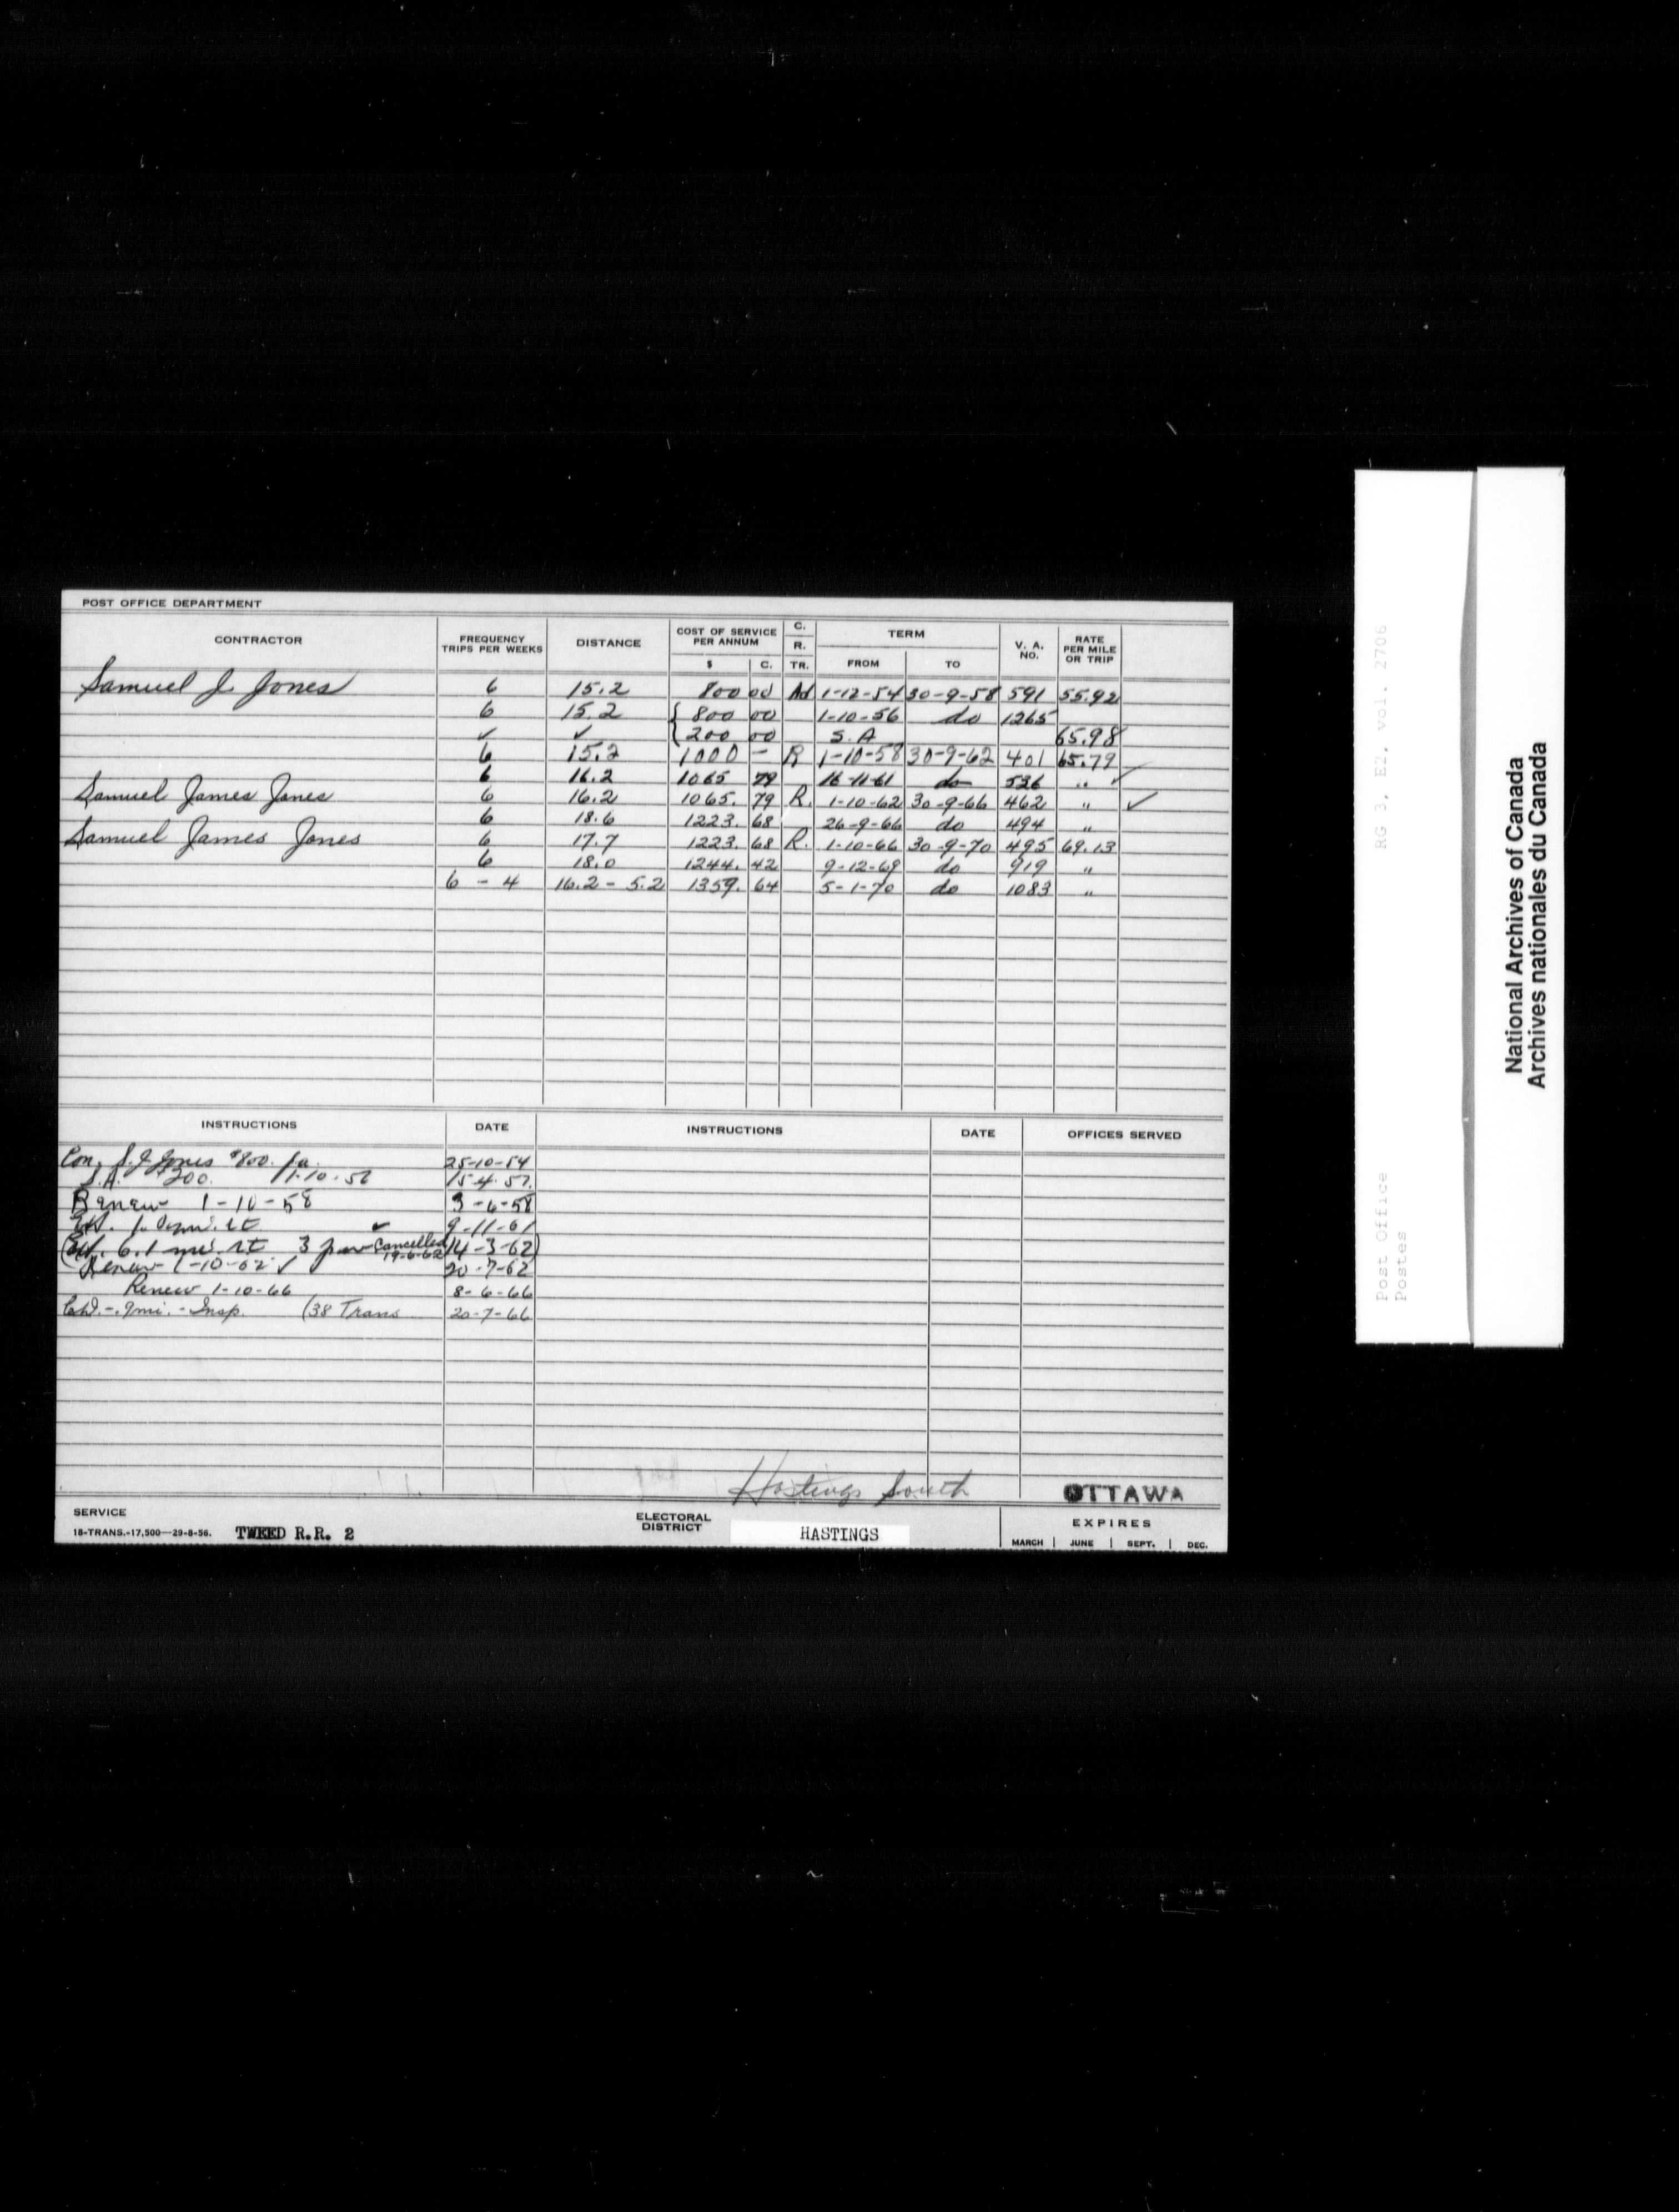 POST OFFICE DEPARTMENT
CONTRACTOR FREQUENCY TRIPS PER WEEKS DISTANCE COST OF SERVICE PER ANNUM $ C. C. R. TR. TERM FROM TO V. A. NO. RATE PER MILE OR TRIP
Samuel J. Jones 6 15.2 800 00 Ad 1-12-54 30-9-58 591 55.92
6 15.2 { 800 00 1-10-56 do 1265
✓ ✓ { 200 00 S.A 65.98
6 15.2 1000 — R 1-10-58 30-9-62 401 65.79
6 16.2 1065 79 16-11-61 do 536 " ✓
Samuel James Jones 6 16.2 1065. 79 R. 1-10-62 30-9-66 462 " ✓
6 18.6 1223. 68 26-9-66 do 494 "
Samuel James Jones 6 17.7 1223. 68 R. 1-10-66 30-9-70 495 69.13
6 18.0 1244. 42 9-12-69 do 919 "
6 - 4 16.2 - 5.2 1359. 64 5-1-70 do 1083 "
INSTRUCTIONS DATE INSTRUCTIONS DATE OFFICES SERVED
Con, S.J. Jones $800. 25-10-54
S.A. $200. 1-10-56 15-4-57.
Renew 1-10-58 3-6-58
Ext. rt ✓ 9-11-61
(Ext. 6.1 mi. rt 3 Cancelled 19-6-62 14-3-62)
Renew 1-10-62 ✓ 20-7-62
Renew 1-10-66 8-6-66
.9mi. - Insp. (38 Trans 20-7-66
Hastings South
OTTAWA
SERVICE
18-TRANS.-17,500—29-8-56. TWEED R.R. 2
ELECTORAL DISTRICT HASTINGS
EXPIRES
MARCH | JUNE | SEPT. | DEC.
RG 3, E2, vol. 2706
Post Office
Postes
National Archives of Canada
Archives nationales du Canada